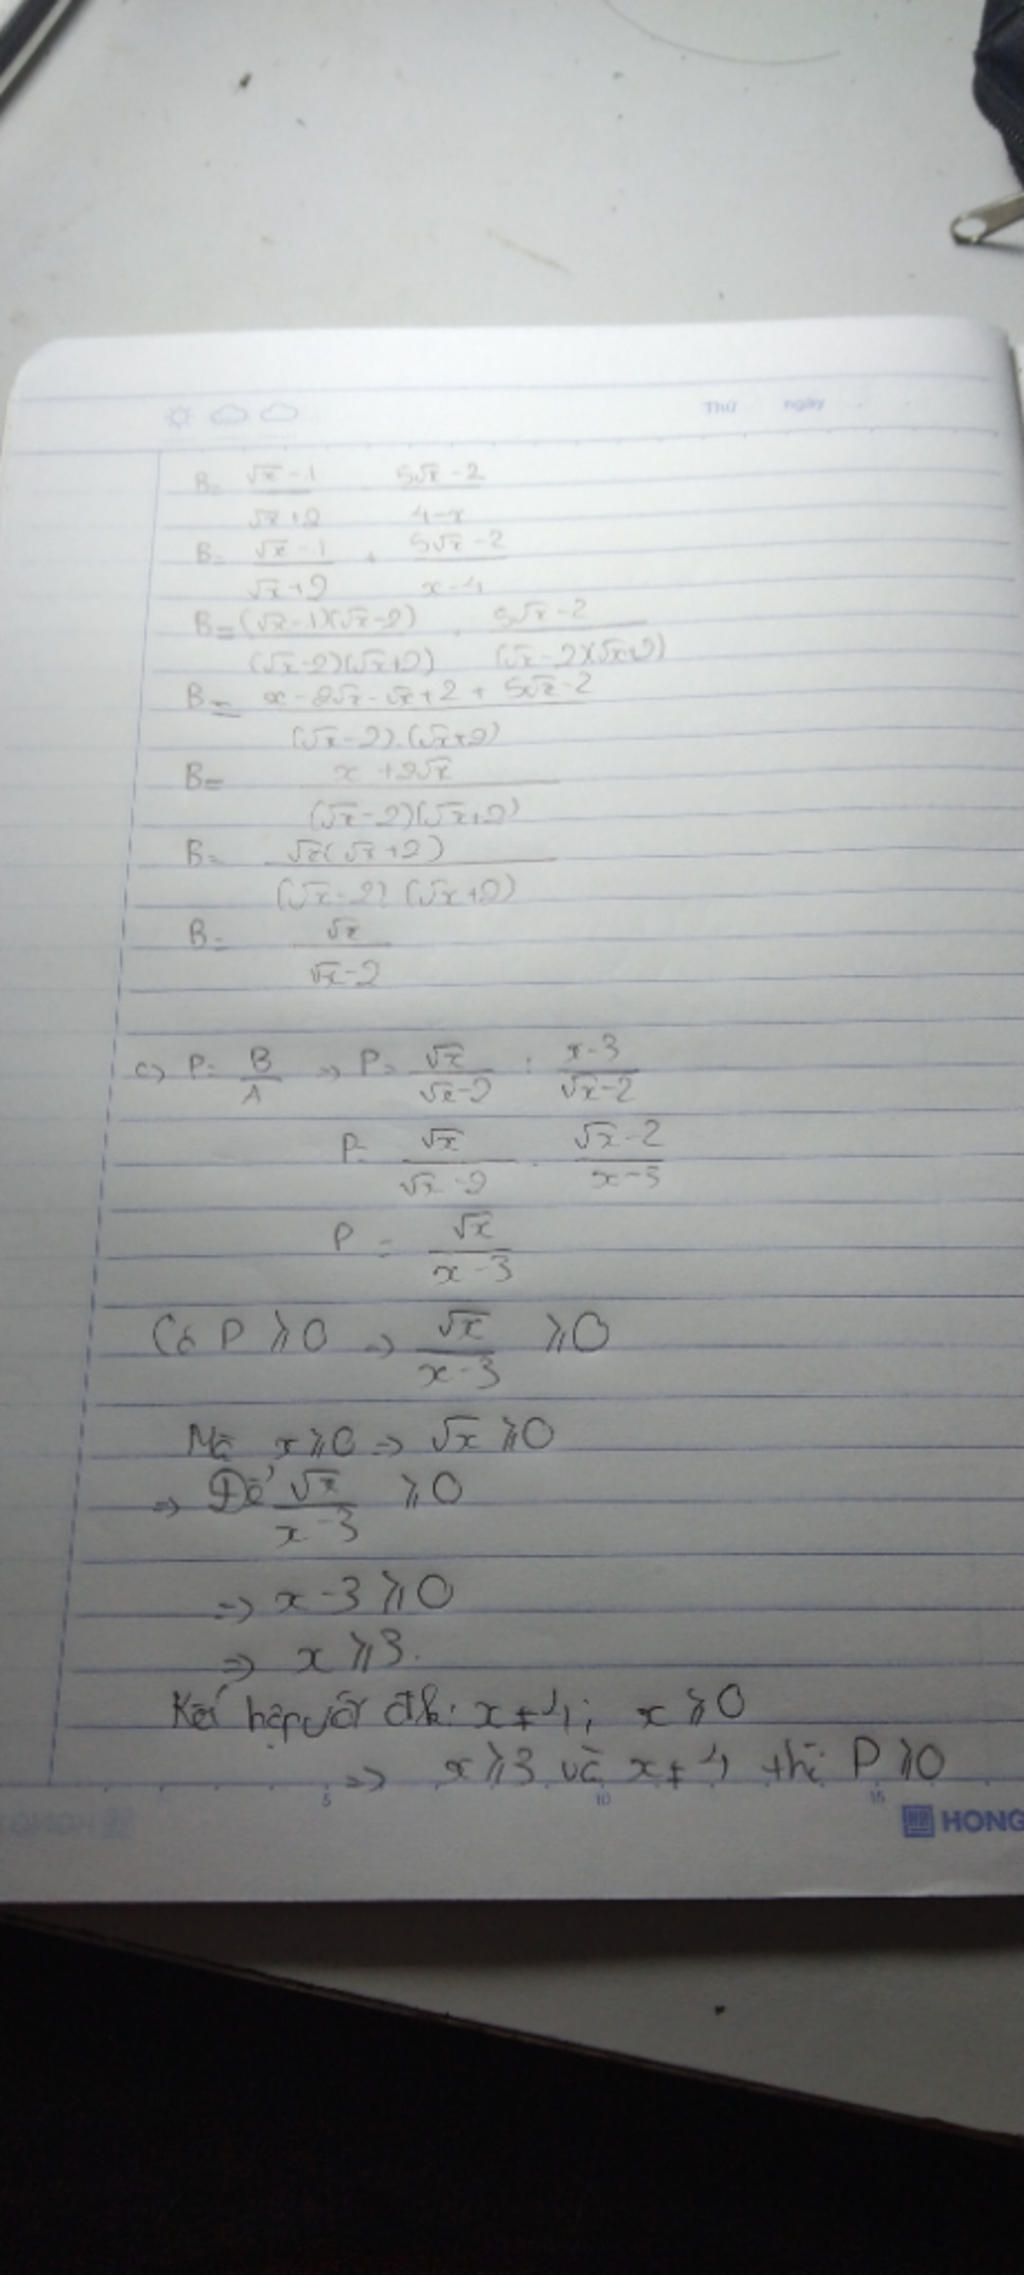 Thứ ngày
B= √x-1/√x+2 - 5√x-2/4-x
B= √x-1/√x+2 + 5√x-2/x-4
B= (√x-1)(√x-2)/(√x-2)(√x+2) + 5√x-2/(√x-2)(√x+2)
B= x-2√x-√x+2+5√x-2/(√x-2).(√x+2)
B= x+2√x/(√x-2)(√x+2)
B= √x(√x+2)/(√x-2)(√x+2)
B= √x/√x-2
c) P= B/A => P= √x/√x-2 : x-3/√x-2
P= √x/√x-2 . √x-2/x-3
P= √x/x-3
Có P ⩾ 0 => √x/x-3 ⩾ 0
Mà x ⩾ 0 => √x ⩾ 0
=> Để √x/x-3 ⩾ 0
=> x-3 ⩾ 0
=> x ⩾ 3.
Kết hợp với đk: x ≠ 4; x ⩾ 0
=> x ⩾ 3 và x ≠ 4 thì P ⩾ 0
5 10 15
HONG